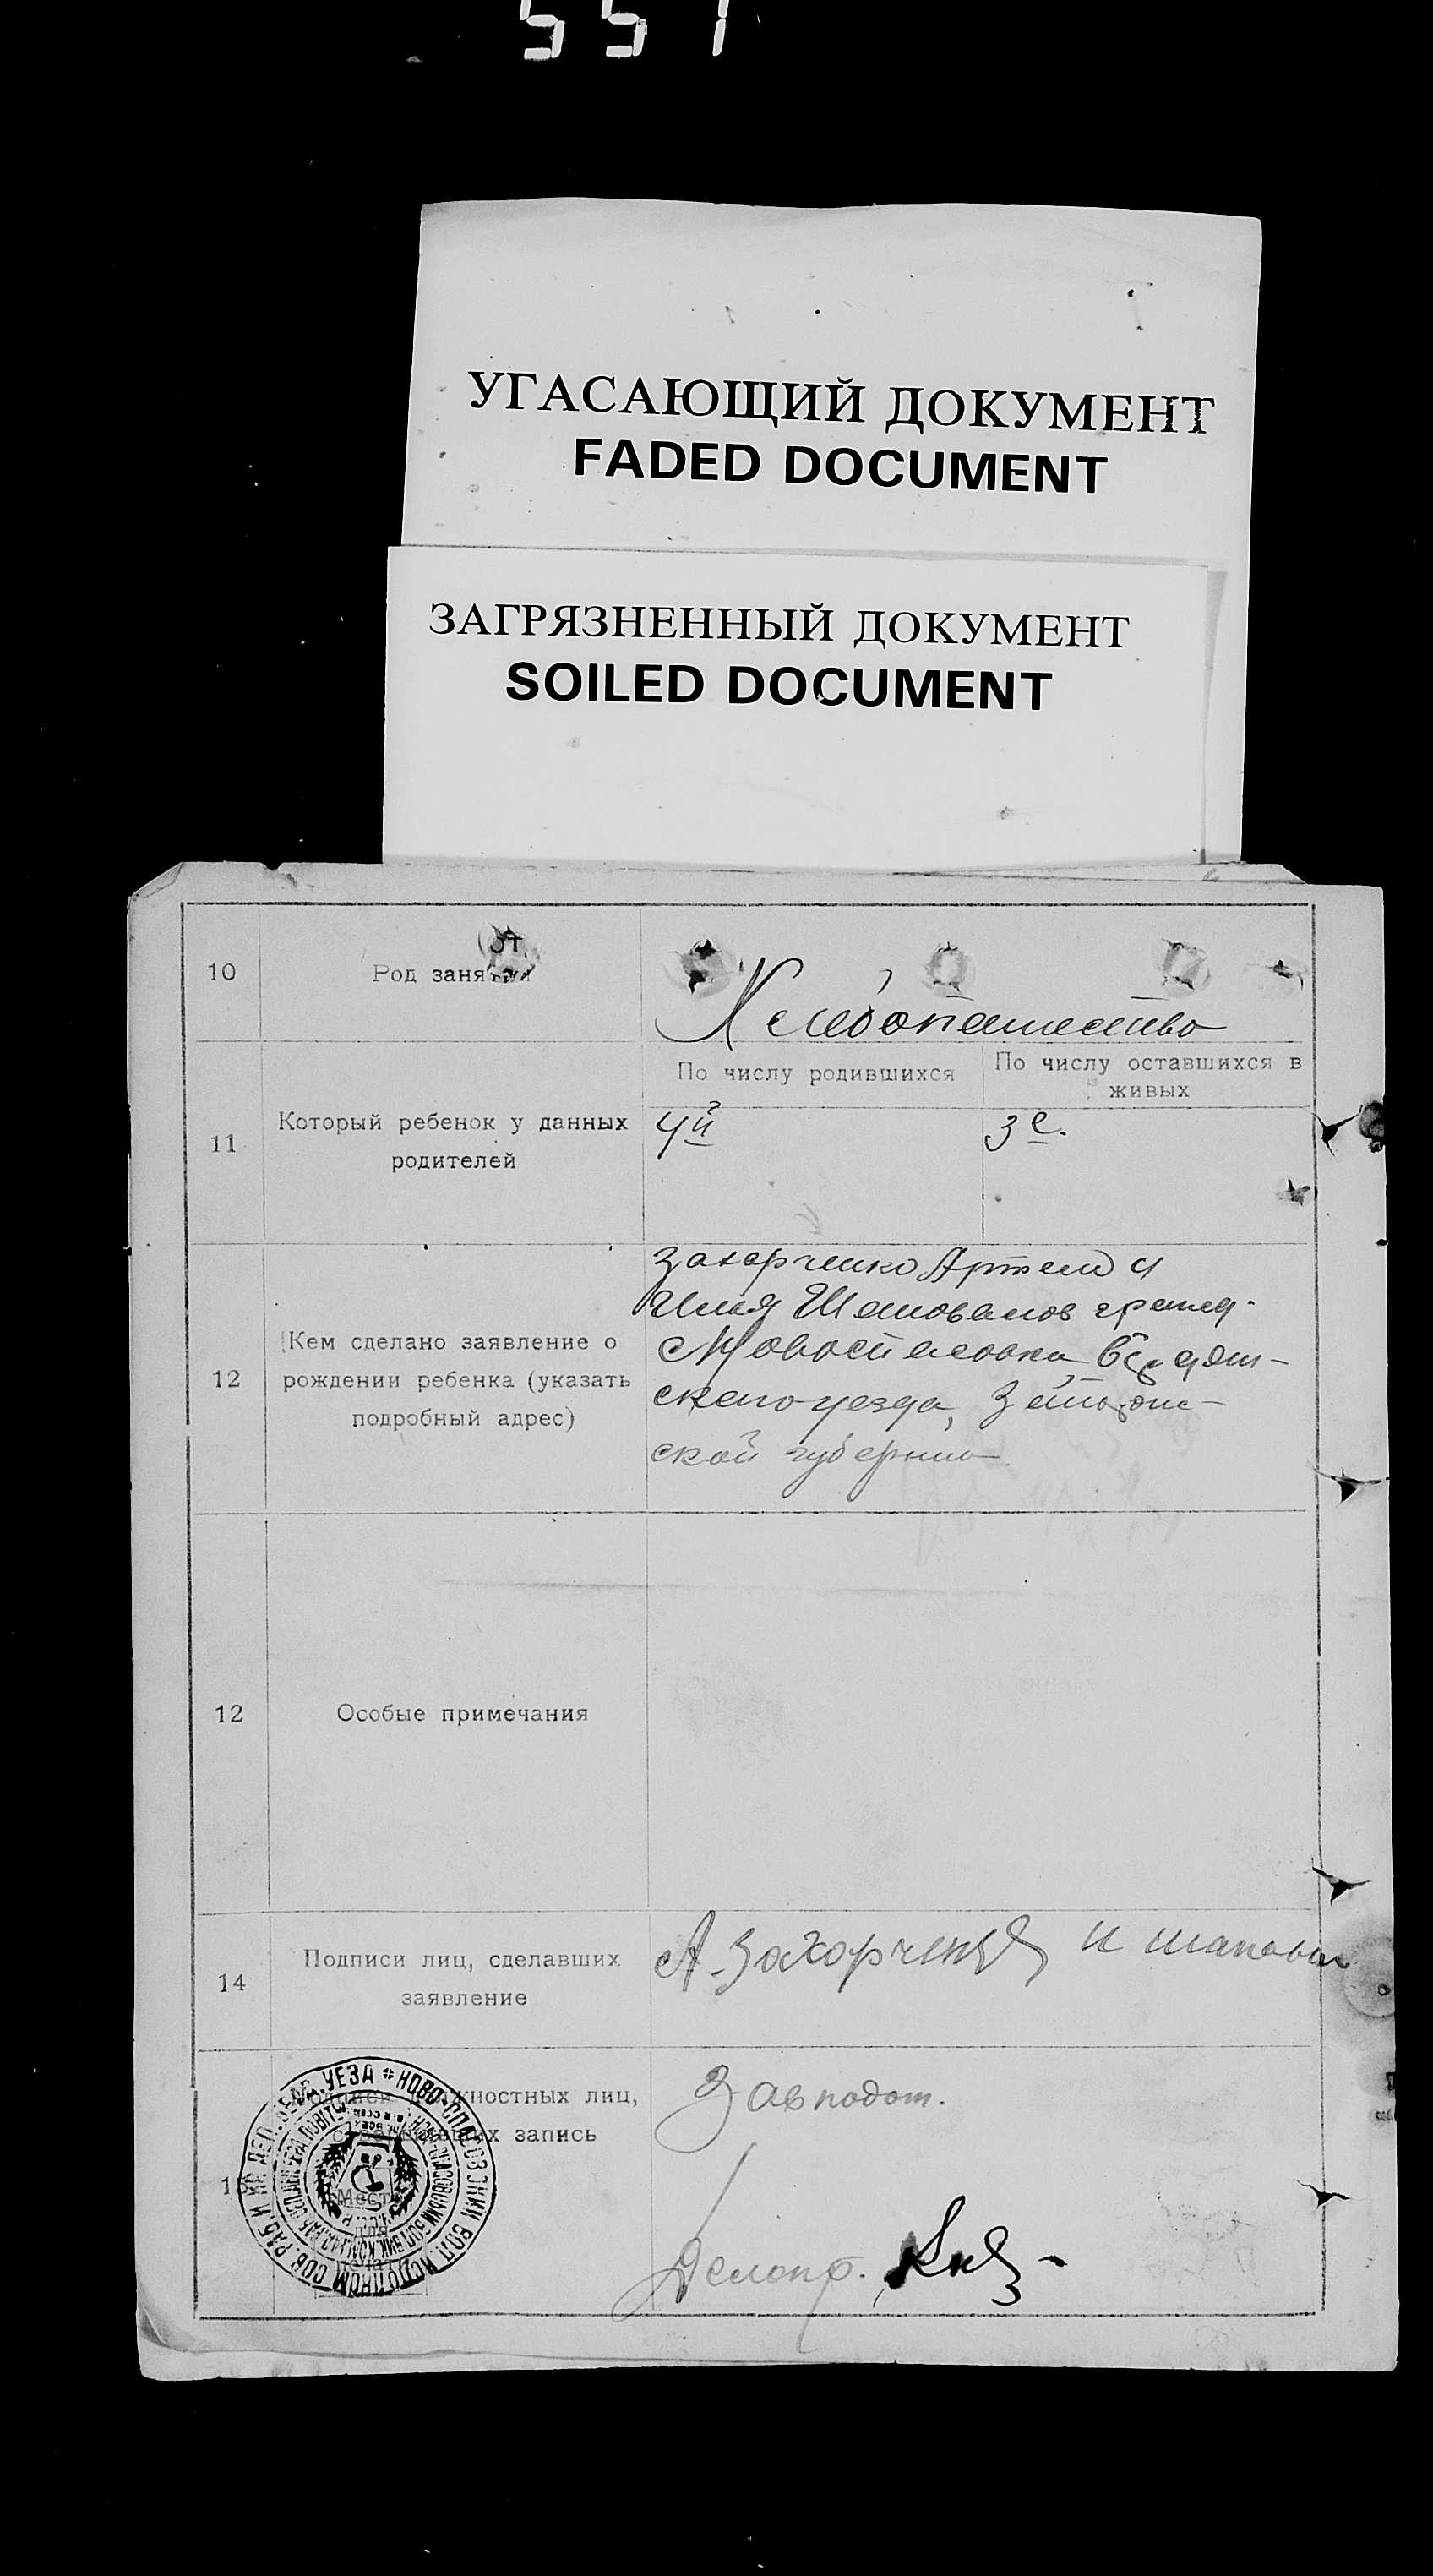 551
УГАСАЮЩИЙ ДОКУМЕНТ
FADED DOCUMENT
ЗАГРЯЗНЕННЫЙ ДОКУМЕНТ
SOILED DOCUMENT
10
Род занятий
Хлебопашество
11
Который ребенок у данных
родителей
По числу родившихся
По числу оставшихся в
живых
4й
3е.
12
Кем сделано заявление о
рождении ребенка (указать
подробный адрес)
Захорченко Артем и
Илья Шаповалов гражд.
Новоспасовка, Бердян-
ского уезда, Запорож-
ской губернии
12
Особые примечания
14
Подписи лиц, сделавших
заявление
А. Захорченко И Шаповал
15
Подписи должностных лиц,
совершивших запись
Место
для
Завподот.
Делопр.
НОВО-СПАСОВСКИЙ ВОЛ. ИСПОЛКОМ СОВ. РАБ. И КР. ДЕП. БЕРД. УЕЗА